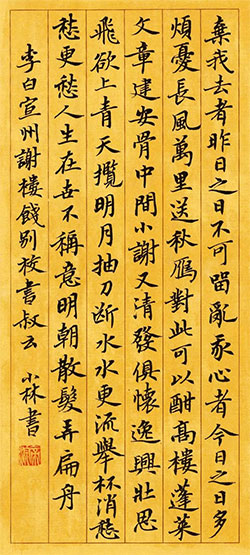 棄我去者昨日之日不可留亂我心者今日之日多
煩憂長風萬里送秋雁對此可以酣高樓蓬萊
文章建安骨中間小謝又清發俱懷逸興壯思
飛欲上青天攬明月抽刀断水水更流舉杯消愁
愁更愁人生在世不稱意明朝散髮弄扁舟
李白宣州謝樓餞別校書叔云 小林書